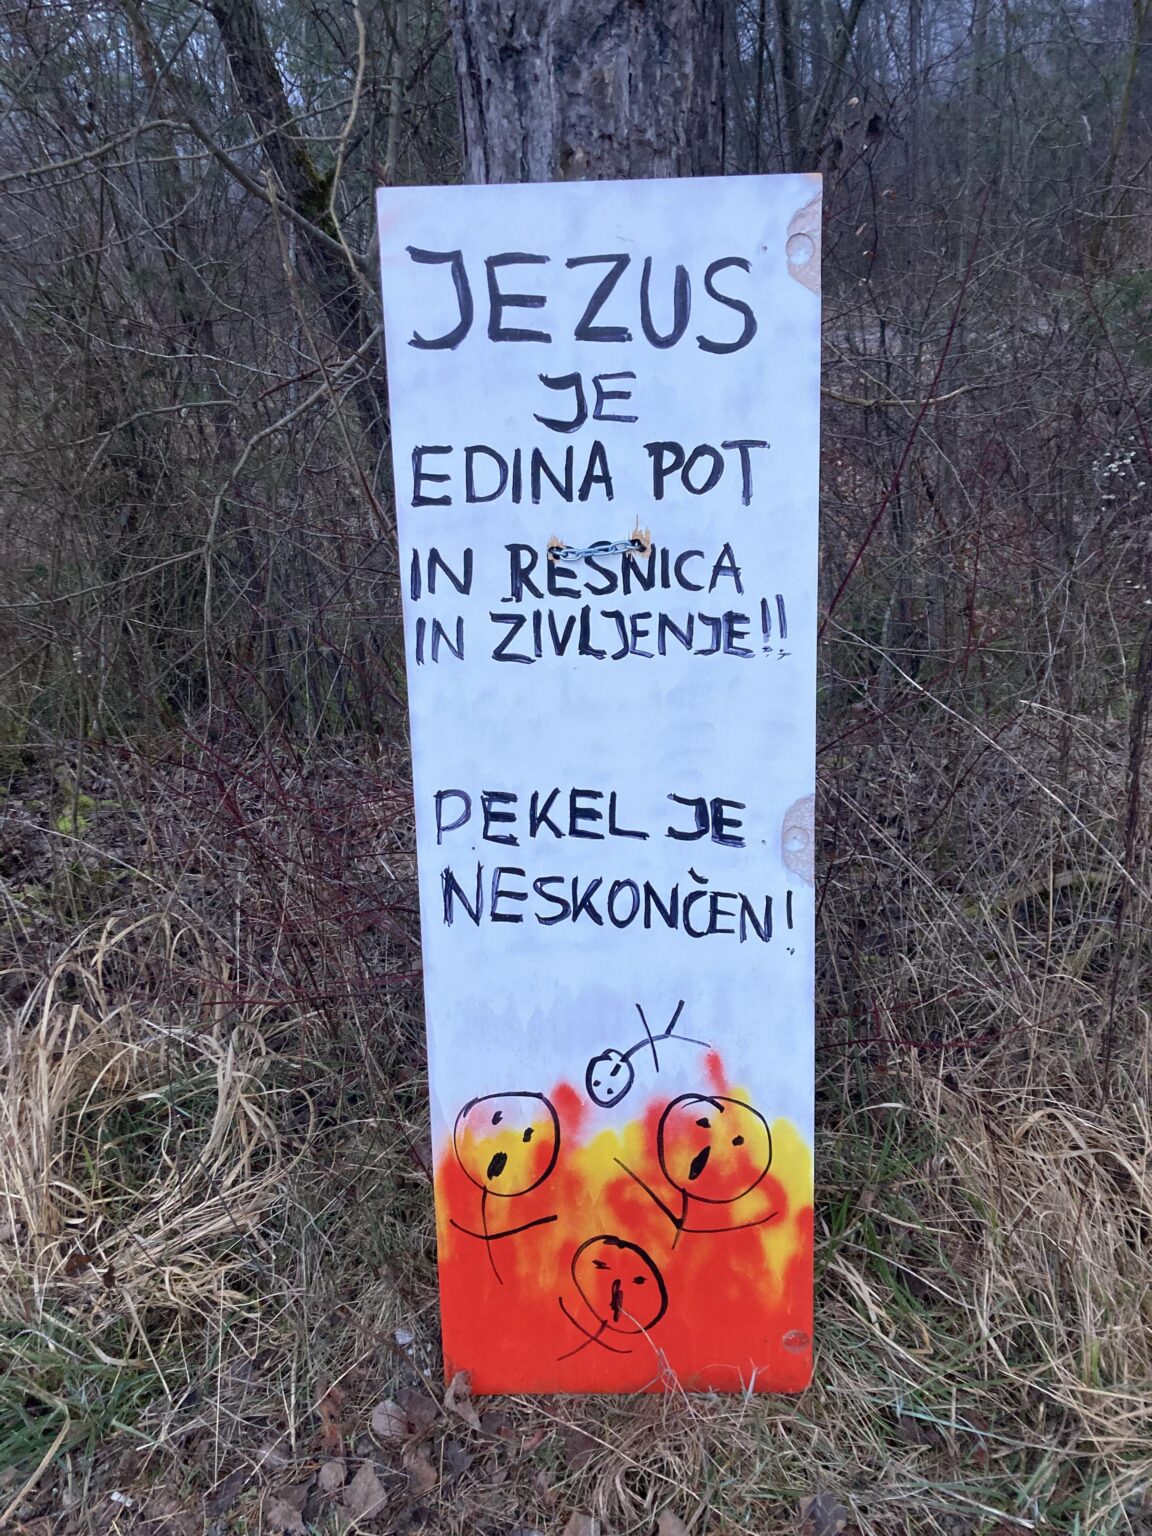 JEZUS
JE
EDINA POT
IN RESNICA
IN ZIVLJENJE!!
PEKEL JE
NESKONČEN!